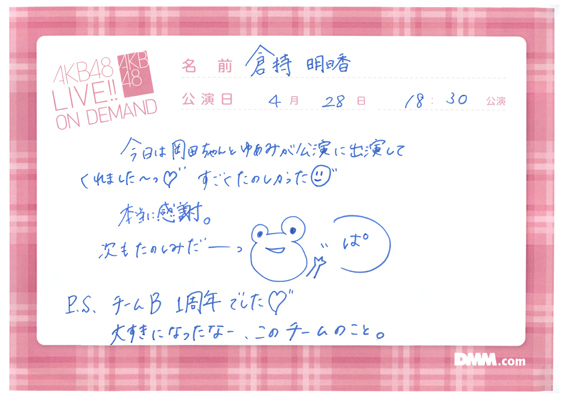 AKB48
LIVE!!
ON DEMAND
AKB
48
名 前 倉持 明日香
公演日 4月 28日 18:30 公演
今日は岡田ちゃんとゆあみが公演に出演して
くれました〜っ♡" すごくたのしかった☺"
本当に感謝。
次もたのしみだーっ
ぱ。
P.S. チームB 1周年でした♡"
大すきになったなー、このチームのこと。
DMM.com